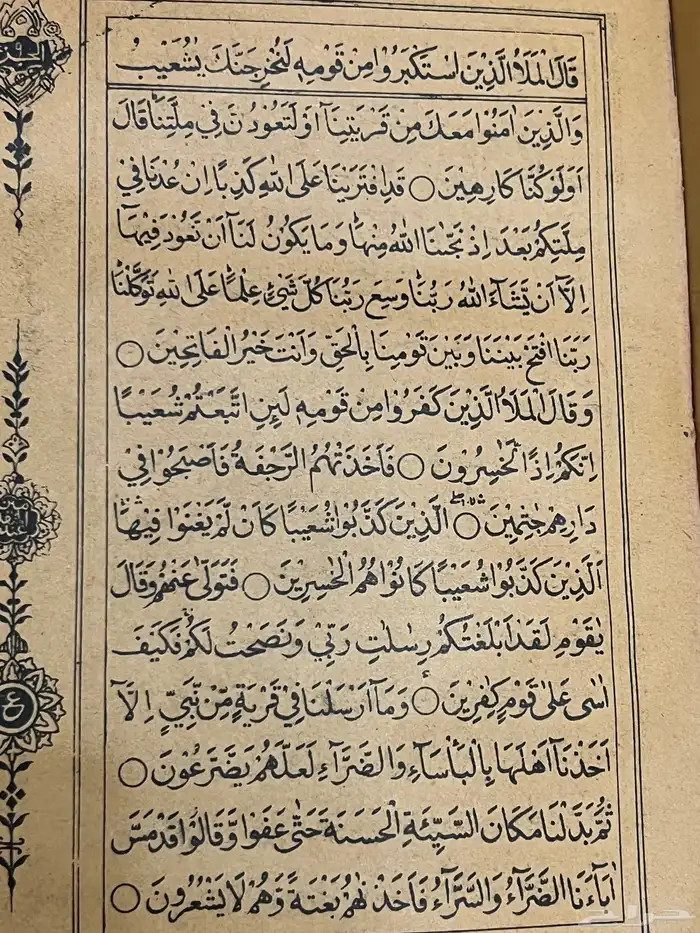 قَالَ الْمَلَأُ الَّذِينَ اسْتَكْبَرُوا مِنْ قَوْمِهٖ لَنُخْرِجَنَّكَ يٰشُعَيْبُ
وَالَّذِينَ اٰمَنُوا مَعَكَ مِنْ قَرْيَتِنَآ اَوْ لَتَعُودُنَّ فِي مِلَّتِنَا قَالَ
اَوَلَوْ كُنَّا كَارِهِينَ ○ قَدِ افْتَرَيْنَا عَلَى اللّٰهِ كَذِبًا اِنْ عُدْنَا فِي
مِلَّتِكُمْ بَعْدَ اِذْ نَجّٰىنَا اللّٰهُ مِنْهَا وَمَا يَكُونُ لَنَآ اَنْ نَعُودَ فِيْهَآ
اِلَّآ اَنْ يَّشَآءَ اللّٰهُ رَبُّنَا وَسِعَ رَبُّنَا كُلَّ شَيْءٍ عِلْمًا عَلَى اللّٰهِ تَوَكَّلْنَا
رَبَّنَا افْتَحْ بَيْنَنَا وَبَيْنَ قَوْمِنَا بِالْحَقِّ وَاَنْتَ خَيْرُ الْفَاتِحِيْنَ ○
وَقَالَ الْمَلَأُ الَّذِيْنَ كَفَرُوا مِنْ قَوْمِهٖ لَئِنِ اتَّبَعْتُمْ شُعَيْبًا
اِنَّكُمْ اِذًا لَخٰسِرُونَ ○ فَاَخَذَتْهُمُ الرَّجْفَةُ فَاَصْبَحُوْا فِيْ
دَارِهِمْ جٰثِمِيْنَ ○ الَّذِيْنَ كَذَّبُوا شُعَيْبًا كَاَنْ لَّمْ يَغْنَوْا فِيْهَا
اَلَّذِيْنَ كَذَّبُوا شُعَيْبًا كَانُوا هُمُ الْخٰسِرِيْنَ ○ فَتَوَلّٰى عَنْهُمْ وَقَالَ
يٰقَوْمِ لَقَدْ اَبْلَغْتُكُمْ رِسٰلٰتِ رَبِّيْ وَنَصَحْتُ لَكُمْ فَكَيْفَ
اٰسٰى عَلٰى قَوْمٍ كٰفِرِيْنَ ○ وَمَآ اَرْسَلْنَا فِيْ قَرْيَةٍ مِّنْ نَّبِيٍّ اِلَّآ
اَخَذْنَآ اَهْلَهَا بِالْبَأْسَآءِ وَالضَّرَّآءِ لَعَلَّهُمْ يَضَّرَّعُوْنَ ○
ثُمَّ بَدَّلْنَا مَكَانَ السَّيِّئَةِ الْحَسَنَةَ حَتّٰى عَفَوْا وَّقَالُوْا قَدْ مَسَّ
اٰبَآءَنَا الضَّرَّآءُ وَالسَّرَّآءُ فَاَخَذْنٰهُمْ بَغْتَةً وَّهُمْ لَا يَشْعُرُوْنَ ○